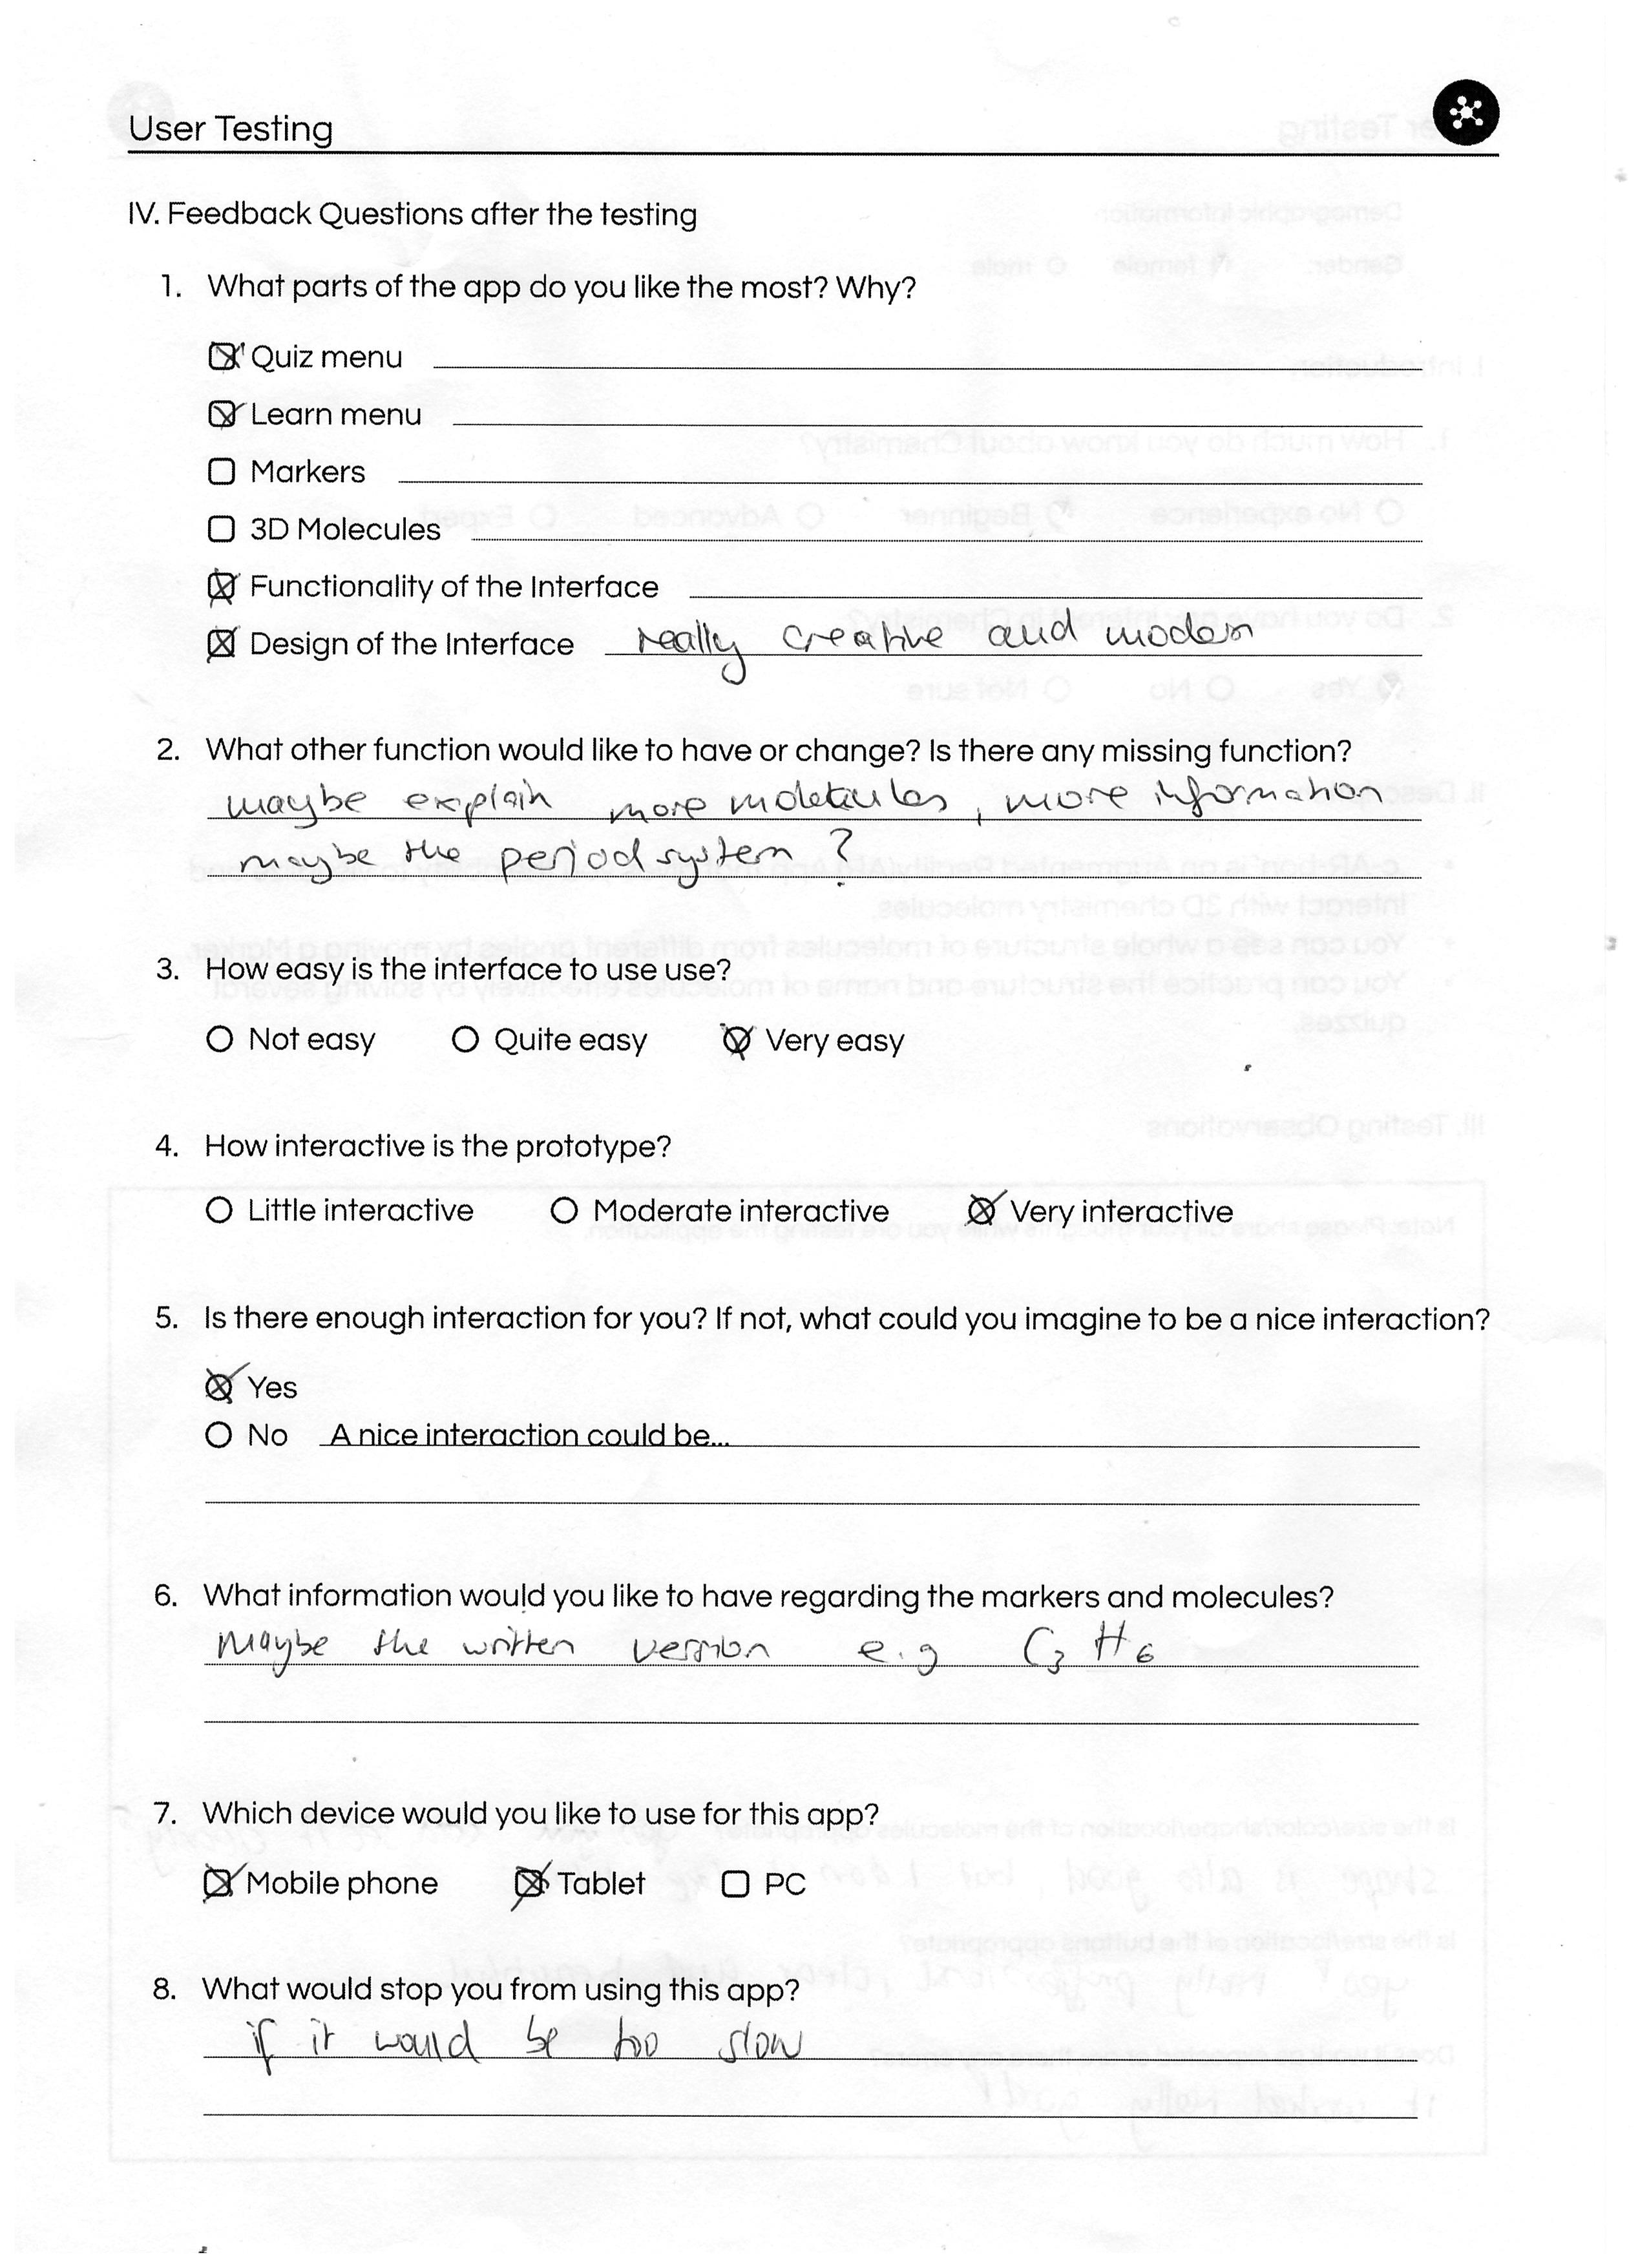 User Testing
IV. Feedback Questions after the testing
1. What parts of the app do you like the most? Why?
Quiz menu
Learn menu
Markers
3D Molecules
Functionality of the Interface
Design of the Interface really creative and modern
2. What other function would like to have or change? Is there any missing function?
maybe explain more molecules, more information
maybe the period system?
3. How easy is the interface to use use?
Not easy Quite easy Very easy
4. How interactive is the prototype?
Little interactive Moderate interactive Very interactive
5. Is there enough interaction for you? If not, what could you imagine to be a nice interaction?
Yes
No A nice interaction could be...
6. What information would you like to have regarding the markers and molecules?
Maybe the written version e.g C3 H6
7. Which device would you like to use for this app?
Mobile phone Tablet PC
8. What would stop you from using this app?
if it would be too slow